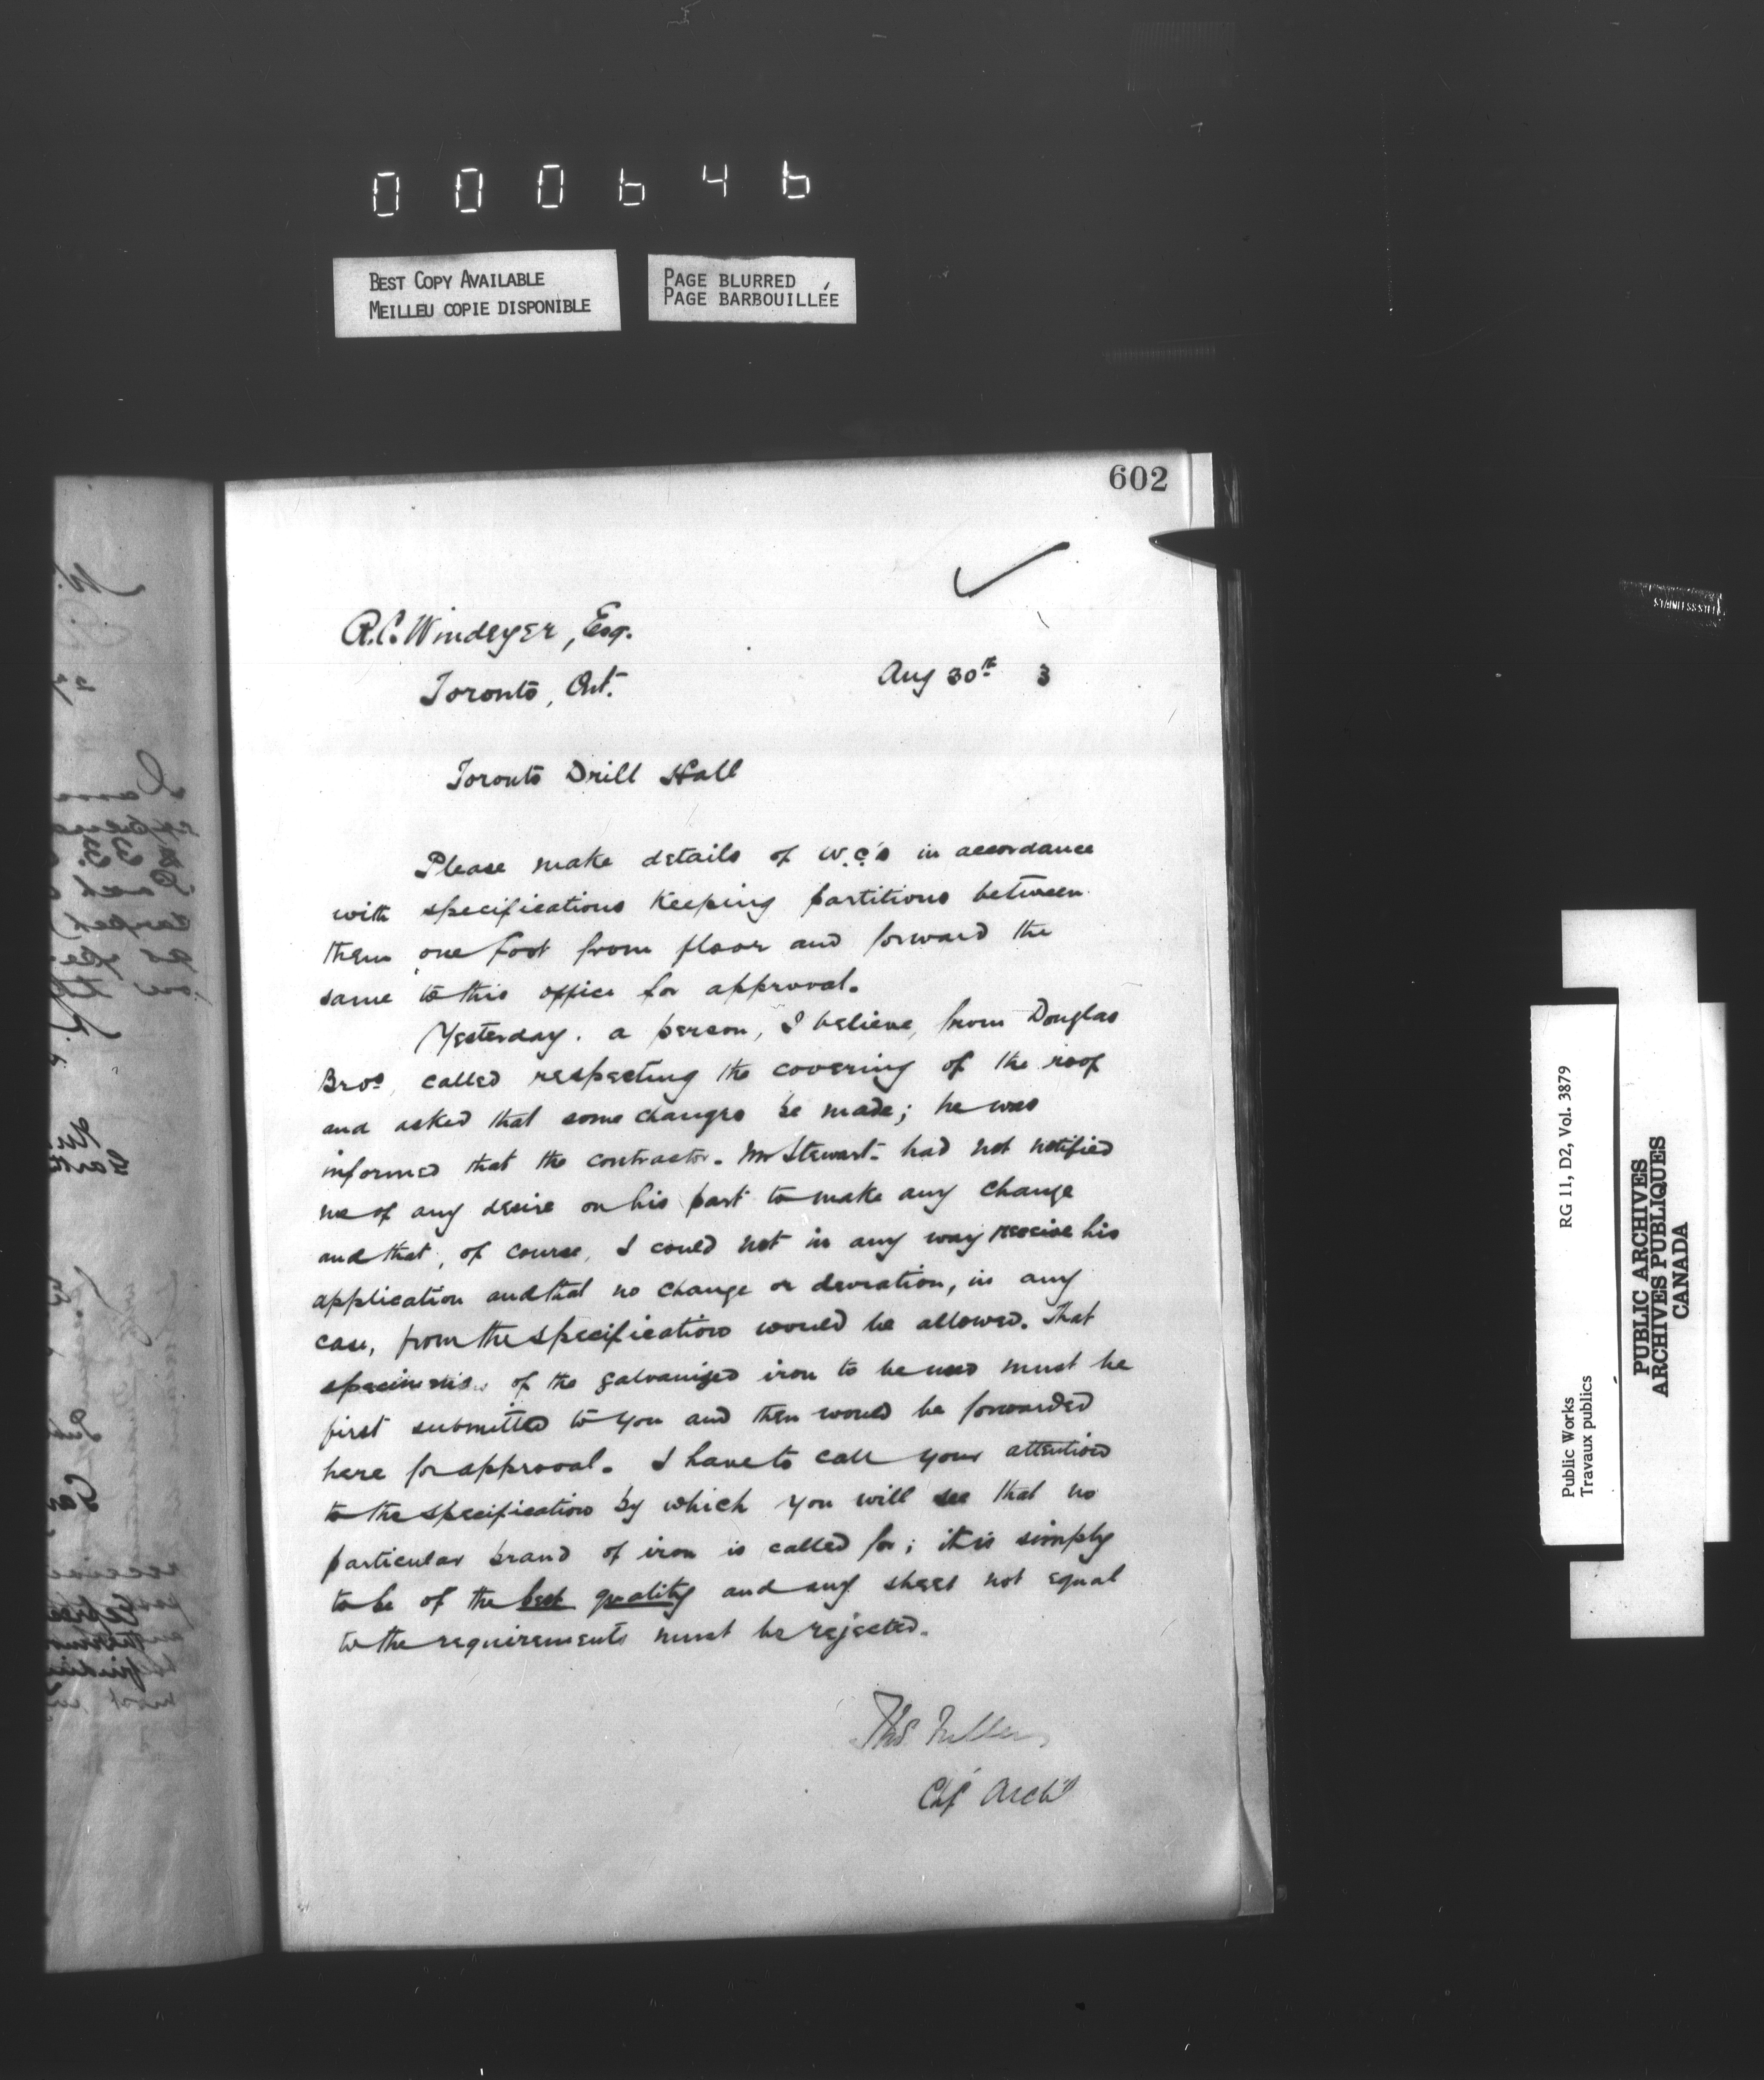 000646
BEST COPY AVAILABLE
MEILLEU COPIE DISPONIBLE
PAGE BLURRED
PAGE BARBOUILLÉE
602
R.C. Windeyer, Esq.
Toronto, Ont.
Aug 30th 3
Toronto Drill Hall
Please make details of W.C's in accordance
with specifications keeping partitions between
them one foot from floor and forward the
same to this office for approval.
Yesterday. a person, I believe, from Douglas
Bros, called respecting the covering of the roof
and asked that some changes be made; he was
informed that the contractor. Mr Stewart. had not notified
me of any desire on his part to make any change
and that, of course, I could not in any way receive his
application and that no change or deviation, in any
case, from the specifications would be allowed. That
specimens of the galvanized iron to be used must be
first submitted to you and then would be forwarded
here for approval. I have to call your attention
to the specification by which you will see that no
particular brand of iron is called for; it is simply
to be of the best quality and any sheet not equal
to the requirements must be rejected.
Thos Fuller
Chf Archt
RG 11, D2, Vol. 3879
Public Works
Travaux publics
PUBLIC ARCHIVES
ARCHIVES PUBLIQUES
CANADA